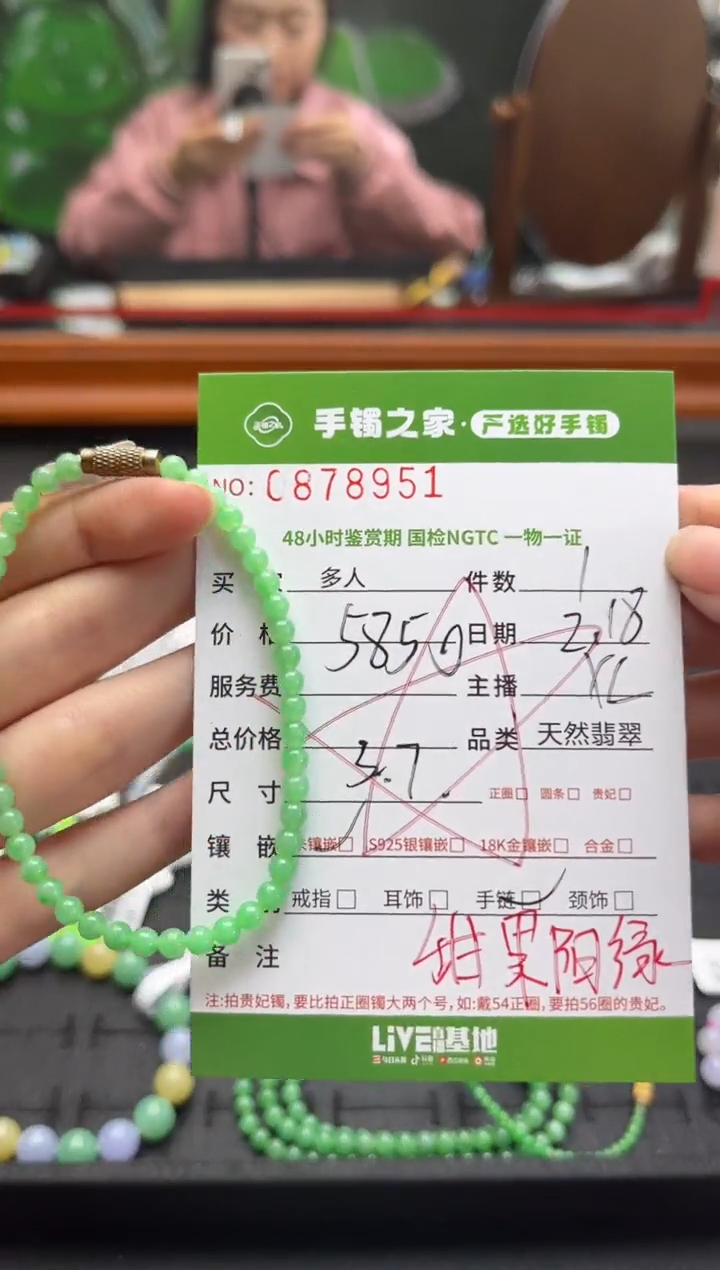 手镯之家·严选好手镯
NO: 0878951
48小时鉴赏期 国检NGTC 一物一证
买 多人 件数 1
价 格 5850 日期 2.18
服务费 主播 XL
总价格 品类 天然翡翠
尺 寸 3.7 正圈□ 圆条□ 贵妃□
镶 嵌 镶嵌□ S925银镶嵌□ 18K金镶嵌□ 合金□
类 戒指□ 耳饰□ 手链□ 颈饰□
备 注 阳绿
注:拍贵妃镯,要比拍正圈镯大两个号,如:戴54正圈,要拍56圈的贵妃。
LiVE直播基地